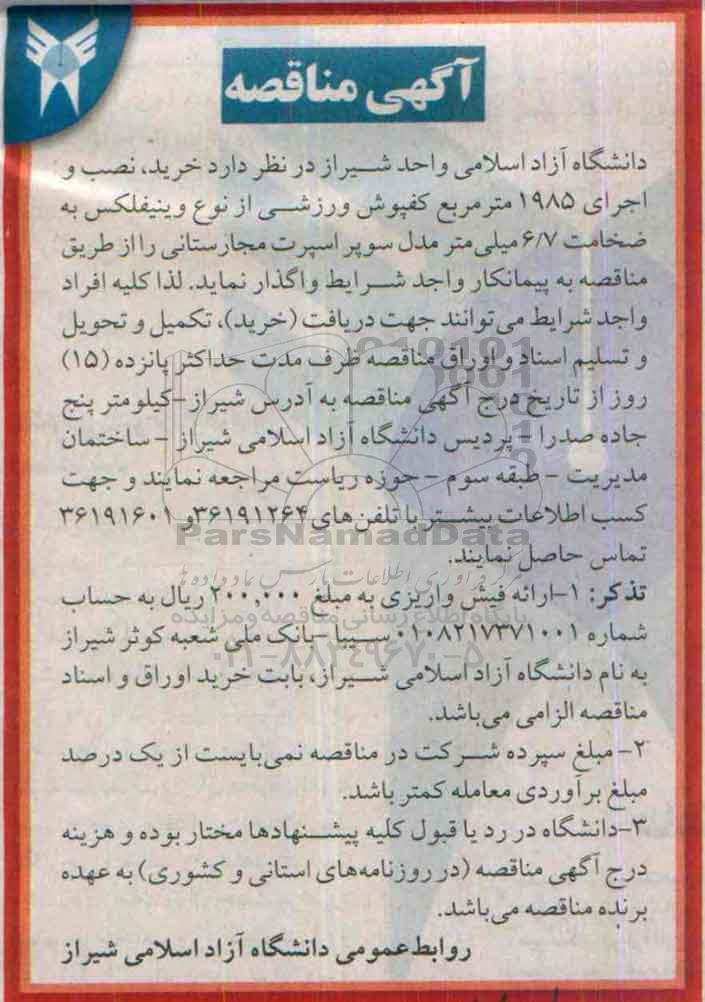 آگهی مناقصه
دانشگاه آزاد اسلامی واحد شیراز در نظر دارد خرید، نصب و
اجرای ۱۹۸۵ مترمربع کفپوش ورزشی از نوع وینیفلکس به
ضخامت ۶/۷ میلی‌متر مدل سوپر اسپرت مجارستانی را از طریق
مناقصه به پیمانکار واجد شرایط واگذار نماید. لذا کلیه افراد
واجد شرایط می‌توانند جهت دریافت (خرید)، تکمیل و تحویل
و تسلیم اسناد و اوراق مناقصه ظرف مدت حداکثر پانزده (۱۵)
روز از تاریخ درج آگهی مناقصه به آدرس شیراز -کیلومتر پنج
جاده صدرا - پردیس دانشگاه آزاد اسلامی شیراز - ساختمان
مدیریت - طبقه سوم - حوزه ریاست مراجعه نمایند و جهت
کسب اطلاعات بیشتر با تلفن‌های ۳۶۱۹۱۲۶۴و ۳۶۱۹۱۶۰۱
ParsNamadData
تماس حاصل نمایند.
مرکز فرآوری اطلاعات پارس نماد داده ها
تذکر: ۱-ارائه فیش واریزی به مبلغ ۲۰۰,۰۰۰ ریال به حساب
پایگاه اطلاع رسانی مناقصه و مزایده
شماره ۰۱۰۸۲۱۷۳۷۱۰۰۱ سیبا -بانک ملی شعبه کوثر شیراز
۰۲۱-۸۸۳۴۹۶۷۰-۵
به نام دانشگاه آزاد اسلامی شیراز، بابت خرید اوراق و اسناد
مناقصه الزامی می‌باشد.
۲- مبلغ سپرده شرکت در مناقصه نمی‌بایست از یک درصد
مبلغ برآوردی معامله کمتر باشد.
۳-دانشگاه در رد یا قبول کلیه پیشنهادها مختار بوده و هزینه
درج آگهی مناقصه (در روزنامه‌های استانی و کشوری) به عهده
برنده مناقصه می‌باشد.
روابط‌عمومی دانشگاه آزاد اسلامی شیراز